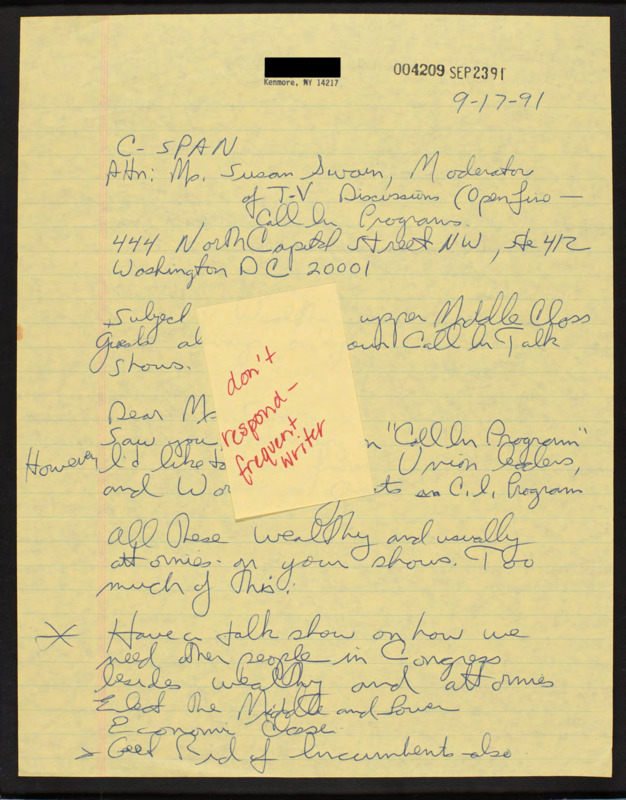 Kenmore, NY 14217
004209 SEP 23 91
9-17-91
C-SPAN
Attn: Ms. Susan Swain, Moderator
of T-V Discussions (Open Line —
Call In Programs.
444 North Capitol Street NW, Ste 412
Washington DC 20001
Subject upper Middle Class
Guests Call In Talk
Shows.
Dear Ms.
Saw you "Call In Program"
However I'd like to Union leaders,
and on C.I. Program
don't
respond -
frequent
writer
All these wealthy and usually
attornies on your shows. Too
much of this!
Have a talk show on how we
need other people in Congress
besides wealthy and attornies
Elect the Middle and Lower
Economic Class
> Get Rid of Incumbents also